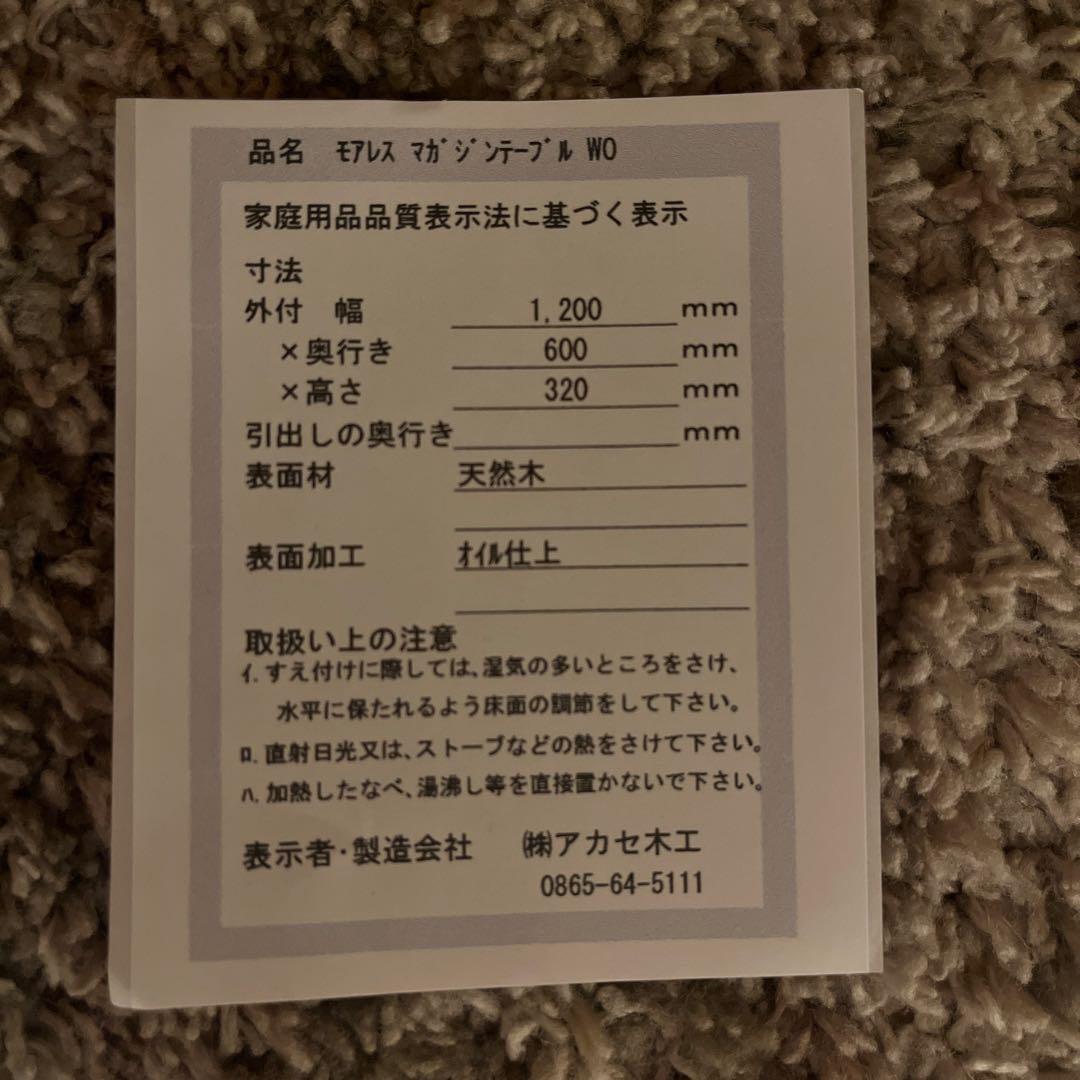 品名　ﾓｱﾚｽ ﾏｶﾞｼﾞﾝﾃｰﾌﾞﾙ WO
家庭用品品質表示法に基づく表示
寸法
外付　幅　1,200 mm
×奥行き　600 mm
×高さ　320 mm
引出しの奥行き　mm
表面材　天然木
表面加工　ｵｲﾙ仕上
取扱い上の注意
ｲ. すえ付けに際しては、湿気の多いところをさけ、
水平に保たれるよう床面の調節をして下さい。
ﾛ. 直射日光又は、ストーブなどの熱をさけて下さい。
ﾊ. 加熱したなべ、湯沸し等を直接置かないで下さい。
表示者・製造会社　㈱アカセ木工
0865-64-5111